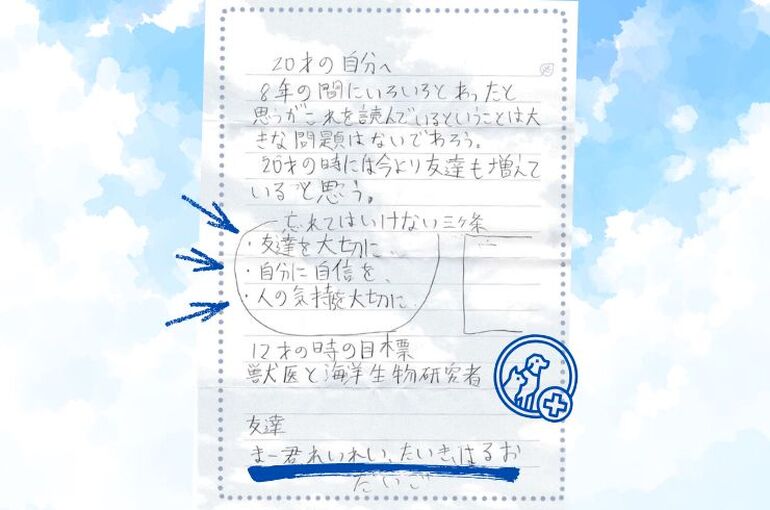 20才の自分へ
8年の間にいろいろとあったと
思うがこれを読んでいるということは大
きな問題はないであろう。
20才の時には今より友達も増えて
いると思う。
忘れてはいけない三ヶ条
・友達を大切に、
・自分に自信を、
・人の気持を大切に
12才の時の目標
獣医と海洋生物研究者
友達
まー君れいれい、たいき、はるお
だいご